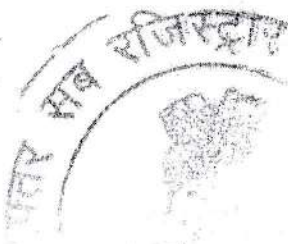 सब रजिस्ट्रार